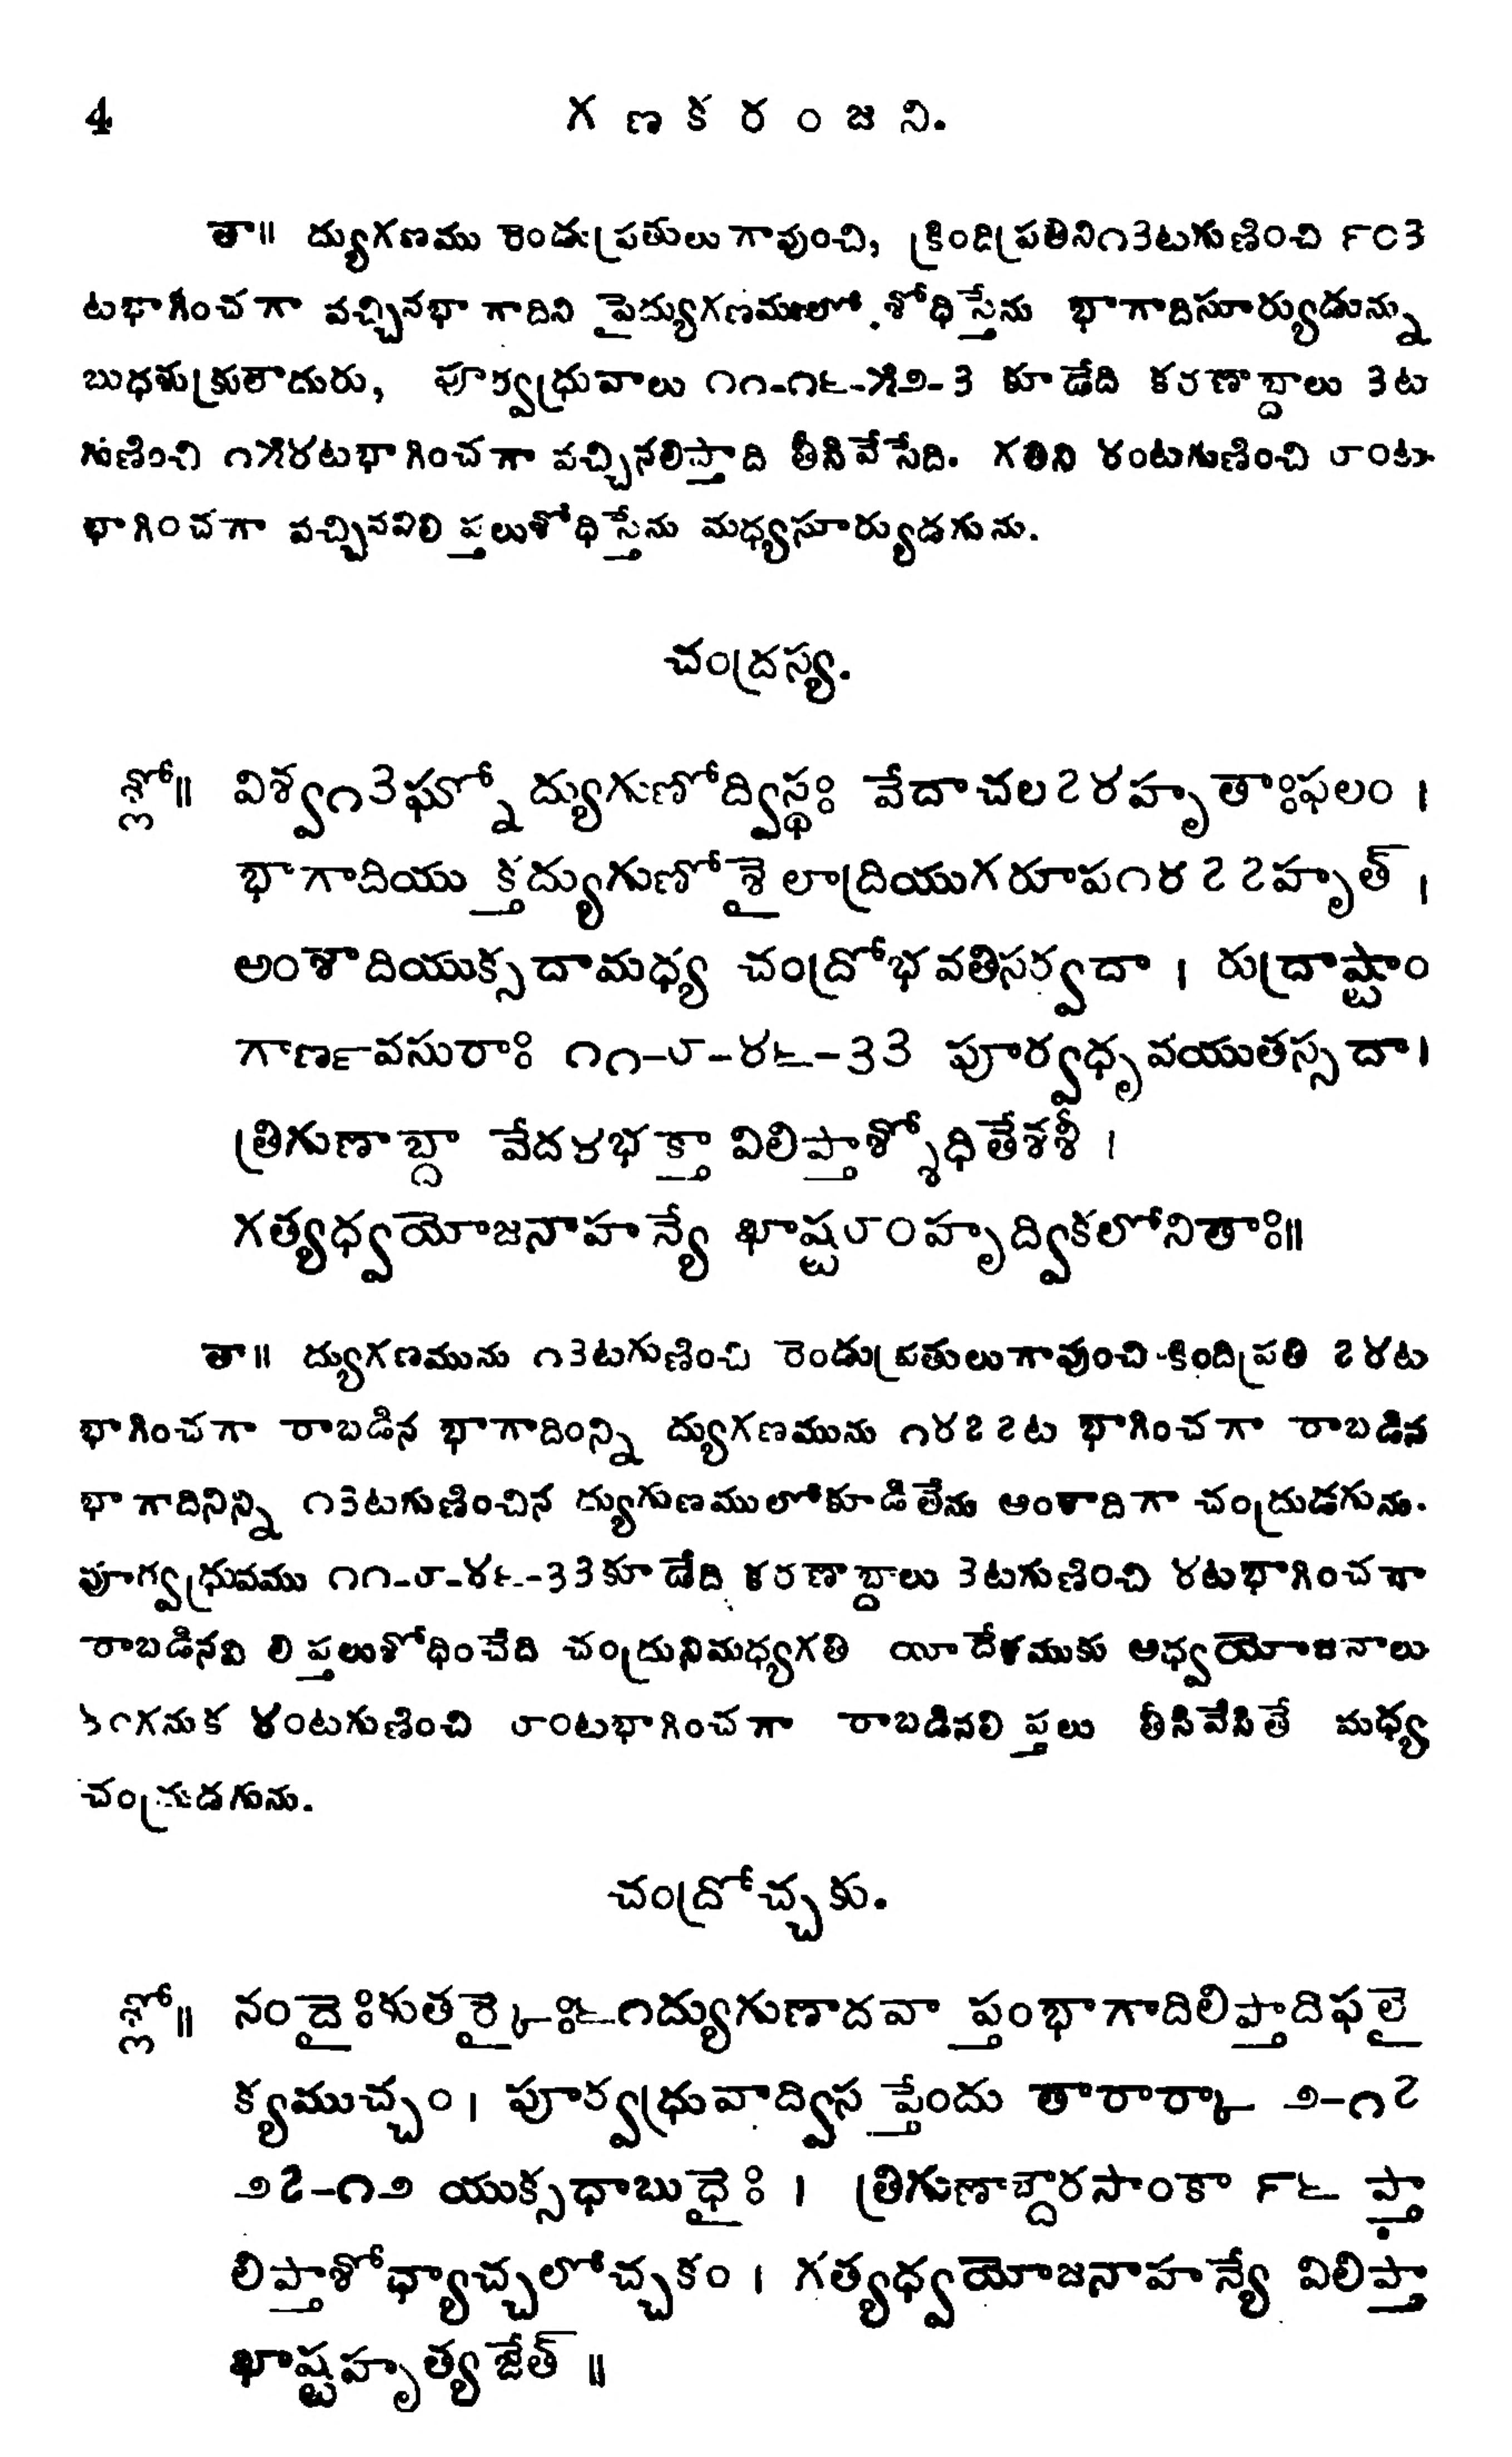 4 గ ణ క ర ం జ ని.
తా॥ ద్యుగణము రెండుప్రతులుగావుంచి, క్రిందిప్రతిని౧౩టగుణించి ౯౦౩
టభాగించగా వచ్చినభాగాదిని పైద్యుగణములో శోధిస్తేను భాగాదిసూర్యుడున్ను
బుధశుక్రులౌదురు, పూర్వధ్రువాలు ౧౧-౧౬-౫౨-౩ కూడేది కరణాబ్దాలు ౩ట
గుణించి ౧౫౪టభాగించగా వచ్చినలిప్తాది తీసివేసేది. గతిని ౪ంటగుణించి ౮౦ట
భాగించగా వచ్చినవిలిప్తలుశోధిస్తేను మధ్యసూర్యుడగును.
చంద్రస్య.
శ్లో॥ విశ్వ౧౩ఘ్నో ద్యుగుణోద్విస్థః వేదాచల౭౪హృతాఃఫలం ।
భాగాదియుక్తద్యుగుణోశైలాద్రియుగరూప౧౪౭౭హృత్ ।
అంశాదియుక్సదామధ్య చంద్రోభవతిసర్వదా । రుద్రాష్టాం
గార్ణవసురాః ౧౧-౮-౪౬-౩౩ పూర్వధృవయుతస్సదా।
త్రిగుణాబ్దా వేద౪భక్తా విలిప్తాశ్శోధితేశశీ ।
గత్యధ్వయోజనాహన్యే ఖాష్ట౮౦హృద్వికలోనితాః॥
తా॥ ద్యుగణమును ౧౩టగుణించి రెండుప్రతులుగావుంచి-కిందిప్రతి ౭౪ట
భాగించగా రాబడిన భాగాదింన్ని ద్యుగణమును ౧౪౭౭ట భాగించగా రాబడిన
భాగాదినిన్ని ౧౩టగుణించిన ద్యుగుణములోకూడితేను ఆంశాదిగా చంద్రుడగును.
పూర్వధ్రువము ౧౧-౮-౪౬-౩౩కూడేది కరణాబ్దాలు ౩టగుణించి ౪టభాగించగా
రాబడినవి లిప్తలుశోధించేది చంద్రునిమధ్యగతి యీదేశముకు అధ్వయోజనాలు
గనుక ౪ంటగుణించి ౮౦టభాగించగా రాబడినలిప్తలు తీసివేసితే మధ్య
చంద్రుడగును.
చంద్రోచ్చకు.
శ్లో॥ నందైఃకుతర్కైః౬౧ద్యుగుణాదవాప్తంభాగాదిలిప్తాదిఫలై
క్యముచ్చం। పూర్వధ్రువాద్విసప్తేందు తారార్కా ౨-౧౭
౨౭-౧౨ యుక్సధాబుధైః । త్రిగుణాబ్దారసాంకా ౯౬ ప్తా
లిప్తాశోధ్యాచ్చలోచ్చకం । గత్యధ్వయోజనాహన్యే విలిప్తా
ఖాష్టహృత్యజేత్ ॥